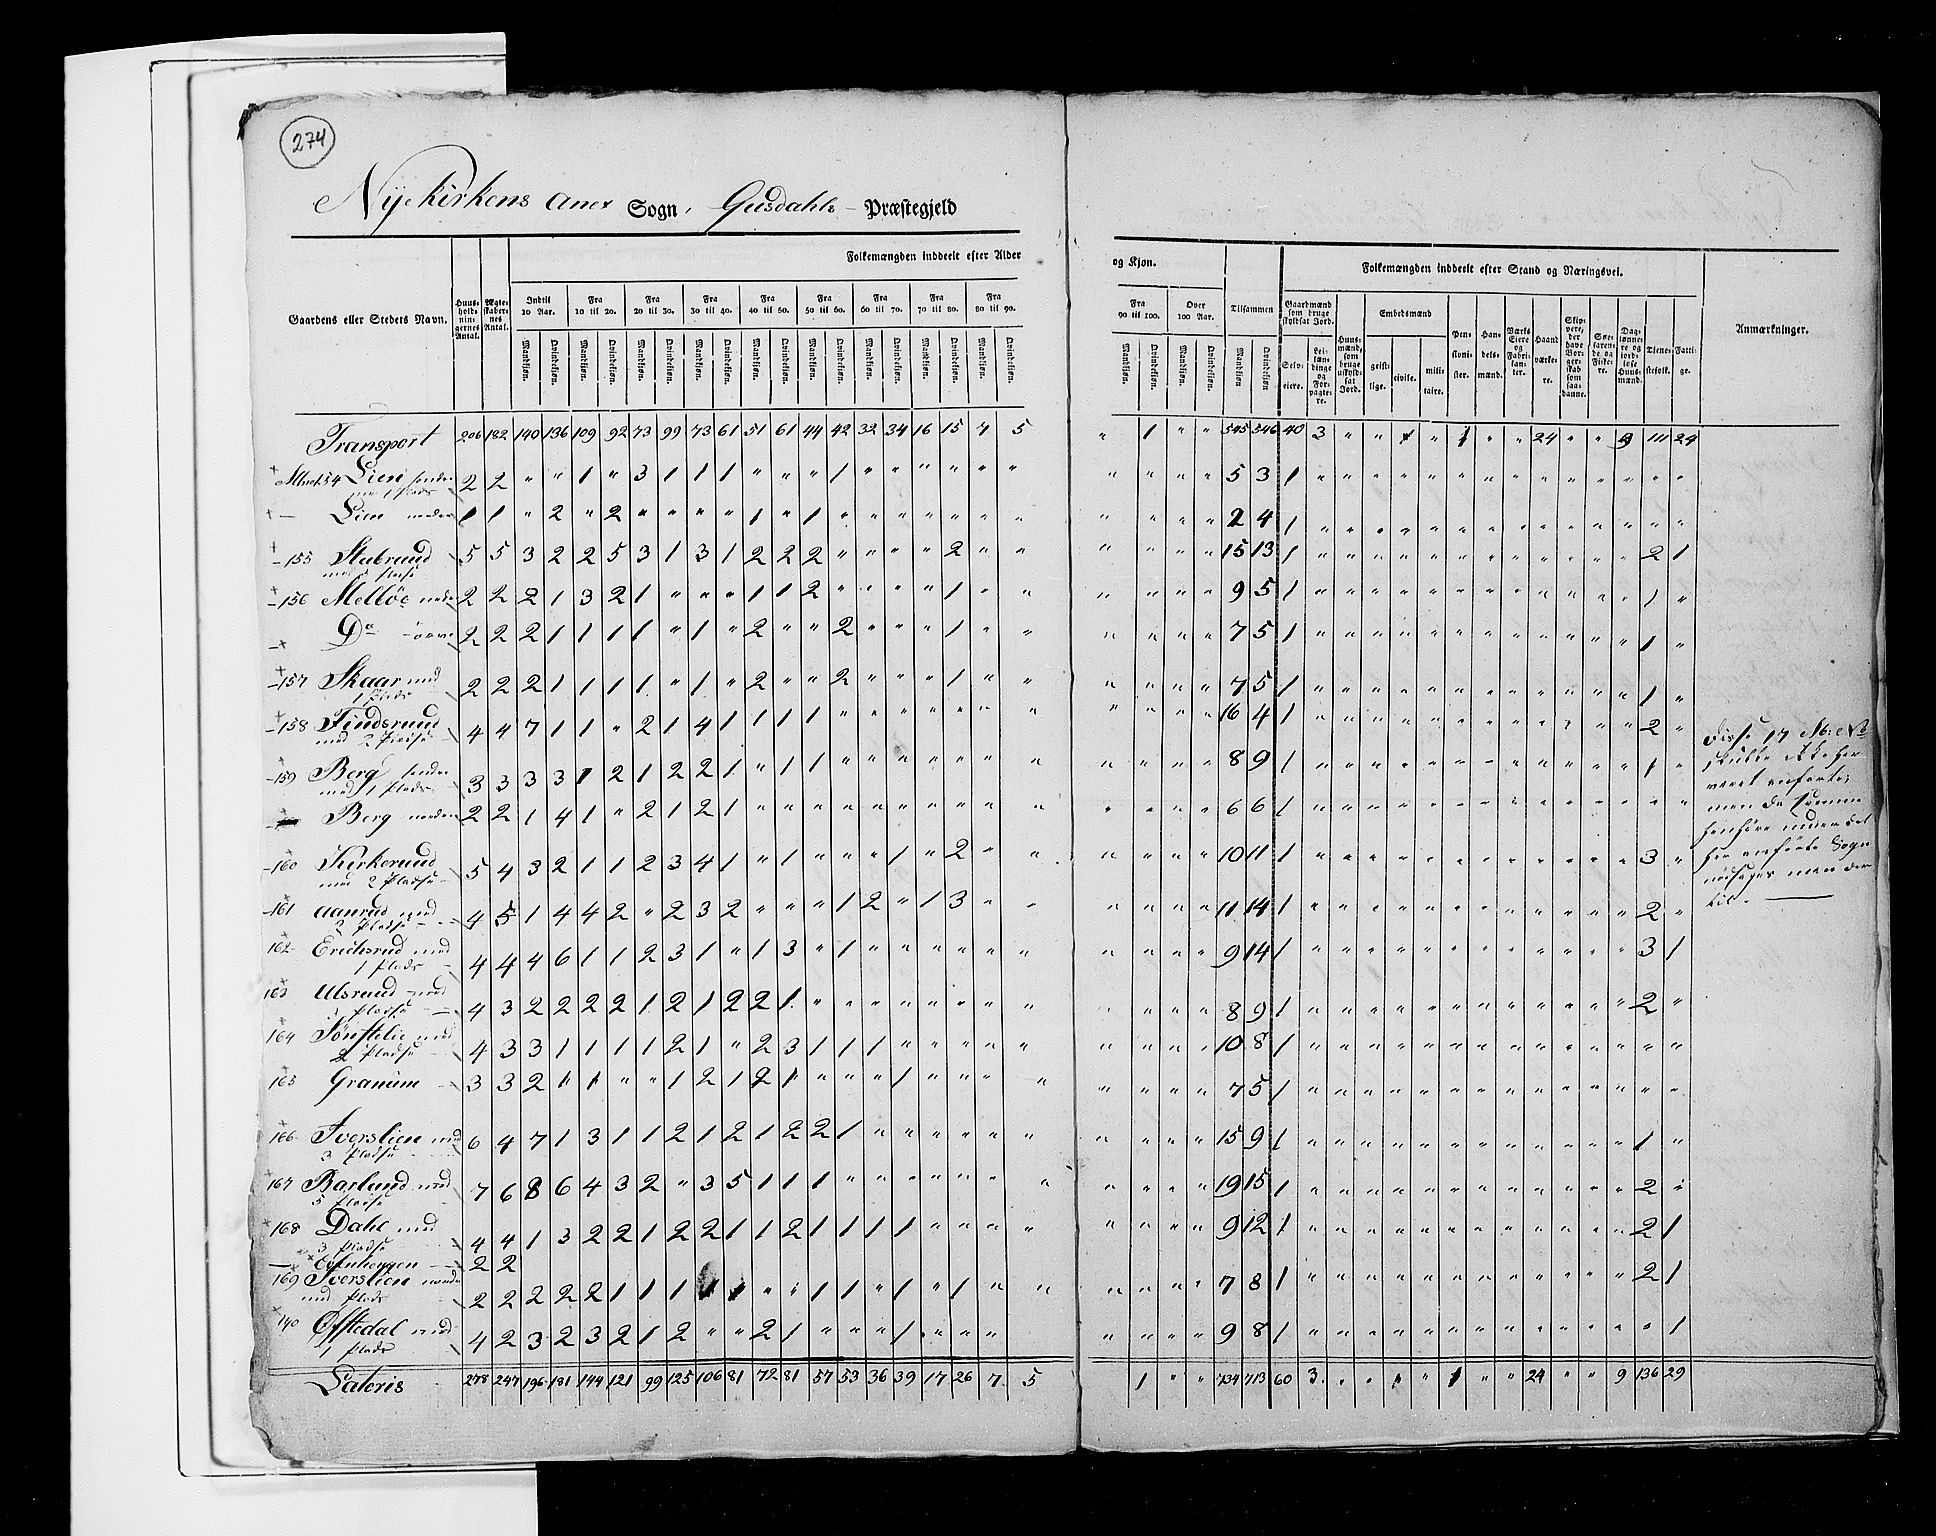 274
Nyekirkens Anex Sogn, Gusdahls Præstegjeld
Gaardens eller Stedets Navn.
Huusholdningernes Antal.
Ægteskabernes Antal.
Folkemængden inddeelt efter Alder og Kjøn.
Indtil 10 Aar.
Fra 10 til 20.
Fra 20 til 30.
Fra 30 til 40.
Fra 40 til 50.
Fra 50 til 60.
Fra 60 til 70.
Fra 70 til 80.
Fra 80 til 90.
Fra 90 til 100.
Over 100 Aar.
Mandkiøn. Qvindekiøn.
Tilsammen
Mandkiøn Qvindekiøn
Folkemængden inddeelt efter Stand og Næringsvei.
Gaardmænd som bruge skyldsat Jord.
Selveiere.
Leilændinge og Forpagtere.
Huusmænd, som bruge uskyldsat Jord.
Embedsmænd
geistlige. civile. militaire.
Pensionister.
Handelsmænd.
Værks Eiere og Fabrikanter.
Haandværkere.
Skippere, der have Borgerskab som saadanne.
Søefarende og Fiskere.
Daglønnere og jordløse Huusmænd.
Tienestefolk.
Fattige.
Anmærkninger.
Transport 206 182 140 136 109 92 73 99 73 61 51 61 44 42 32 34 16 15 7 5 " 1 " " 545 546 40 3 " " 1 " 1 " " 24 " " 9 111 24
Lien søndre 2 2 " " 1 " 3 1 1 1 " " " 1 " " " " " " 5 3 1
Lien nordre 1 1 " 2 " 2 " " " " 1 " 1 " " " " " " " 2 4 1
155 Stubrud 5 5 3 2 2 5 3 1 3 1 2 2 2 " " " " 2 " " 15 13 1 2 1
156 Melløe nedre 2 2 2 1 3 2 1 " " " 1 1 2 " " " " 1 " " 9 5 1 1 "
Do øvre 2 2 2 1 1 1 1 " 1 " 2 " " 2 " " " 1 " " 7 5 1 1 "
157 Skaar med 2 2 2 1 1 1 1 " 1 " 2 " " 2 " " " 1 " " 7 5 1 1 "
1 Plads
158 Tinderud 4 4 7 1 1 " 2 1 4 1 1 1 1 " " " " " " " 16 4 1 2 "
med 2 Pladse
159 Berg søndre 3 3 3 3 1 2 1 2 2 1 " 1 1 " " " " " " " 8 9 1 1 "
med 1 Plads
Berg nordre 2 2 1 4 1 " 2 1 2 1 " " " " " " " " " " 6 6 1 " "
160 Kirkerud 5 4 3 2 1 1 2 3 4 1 " 1 " " " 1 " 2 " " 10 11 1 3 "
med 2 Pladse
161 Aanrud med 4 5 1 4 4 2 " 2 3 2 " " " 1 2 " 1 3 " " 11 14 1 2 "
2 Pladse
162 Erichsrud med 4 4 4 6 1 1 2 3 1 " 1 3 " 1 " " " " " " 9 14 1 3 1
1 Plads
163 Ulsrud med 4 3 2 2 2 2 1 2 1 2 2 1 " " " " " " " " 8 9 1 2 "
Pladse
164 Tønstelie med 4 3 3 1 1 1 1 2 1 " 2 3 1 1 1 " " " " " 10 8 1 " "
2 Pladse
165 Granum 3 3 2 " 1 " " 1 2 1 2 1 " " " 1 " " " " 7 5 1 " "
166 Iverslien med 6 4 7 1 3 1 1 2 1 2 1 2 2 1 " " " " " " 15 9 1 1 "
3 Pladse
167 Barlund med 7 6 8 6 4 3 2 " 3 5 1 1 1 " " " " " " " 19 15 1 2 "
5 Pladse
168 Dahl med 4 4 1 3 2 2 1 2 2 1 1 2 1 1 1 1 " " " " 9 12 1 2 1
3 Pladse
2 2
169 Iverslien nordre 2 2 2 2 2 1 1 1 1 1 " " 1 1 " 1 " 1 " " 7 8 1 2 1
med Plads
Offtedal med 4 2 3 2 3 2 1 2 " " 2 1 " " " 1 " " " " 9 8 1 " 1
1 Plads
Lateris 278 247 196 181 144 121 99 125 106 81 72 81 57 53 36 39 17 26 7 5 " 1 " " 734 713 60 3 " " 1 " 1 " " 24 " " 9 136 29
Disse 17 M: No
skulde ikke her
været anførte;
men da Summa
henhøre under det
her anførte Sogn
nødsages man der
til.